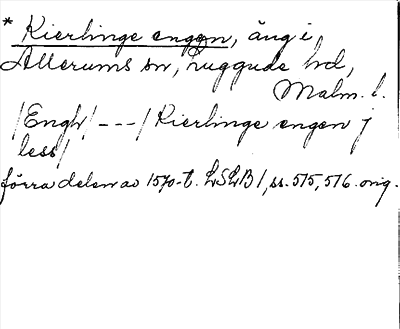 * Kierlinge engen, äng i
Allerums sn, Luggude hd,
Malm. l.
/Engh/ --- / Kierlinge engen j
less/
förra delen av 1570-t. LSLB 1, ss. 515, 516. orig.